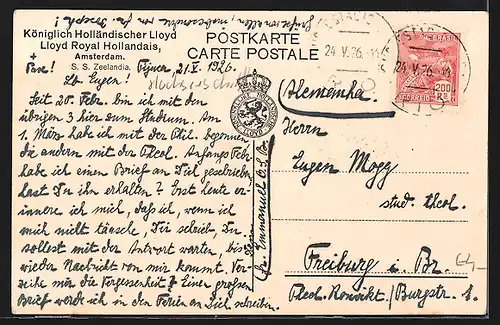 Königlich Holländischer Lloyd
Lloyd Royal Hollandais,
Amsterdam.
S. S. Zeelandia.
POSTKARTE
CARTE POSTALE
24 V. 26
24. V. 26
BRASIL
200
Rs
21. V. 1926.
Pax!
Lb. Eugen!
Seit 20. Febr. bin ich mit den
übrigen 3 hier zum Studium. Am
1. März habe ich mit der Phil. begonnen
die andern mit der Theol. Anfangs Feb.
habe ich einen Brief an Dich geschrieben
hast Du ihn erhalten? Erst heute er-
innere ich mich, daß ich, wenn ich
mich nicht täusche, Dir schrieb, Du
sollest mit der Antwort warten, bis
wieder Nachricht von mir kommt. Ver-
zeihe mir die Vergesslichkeit! Einen großen
Brief werde ich in den Ferien an Dich schreiben.
Dein
Fr. Emmanuel O.S.B.
Herrn
Eugen Mogg
stud. theol.
Freiburg i. Br.
Theol. Konvikt / Burgstr. 1.